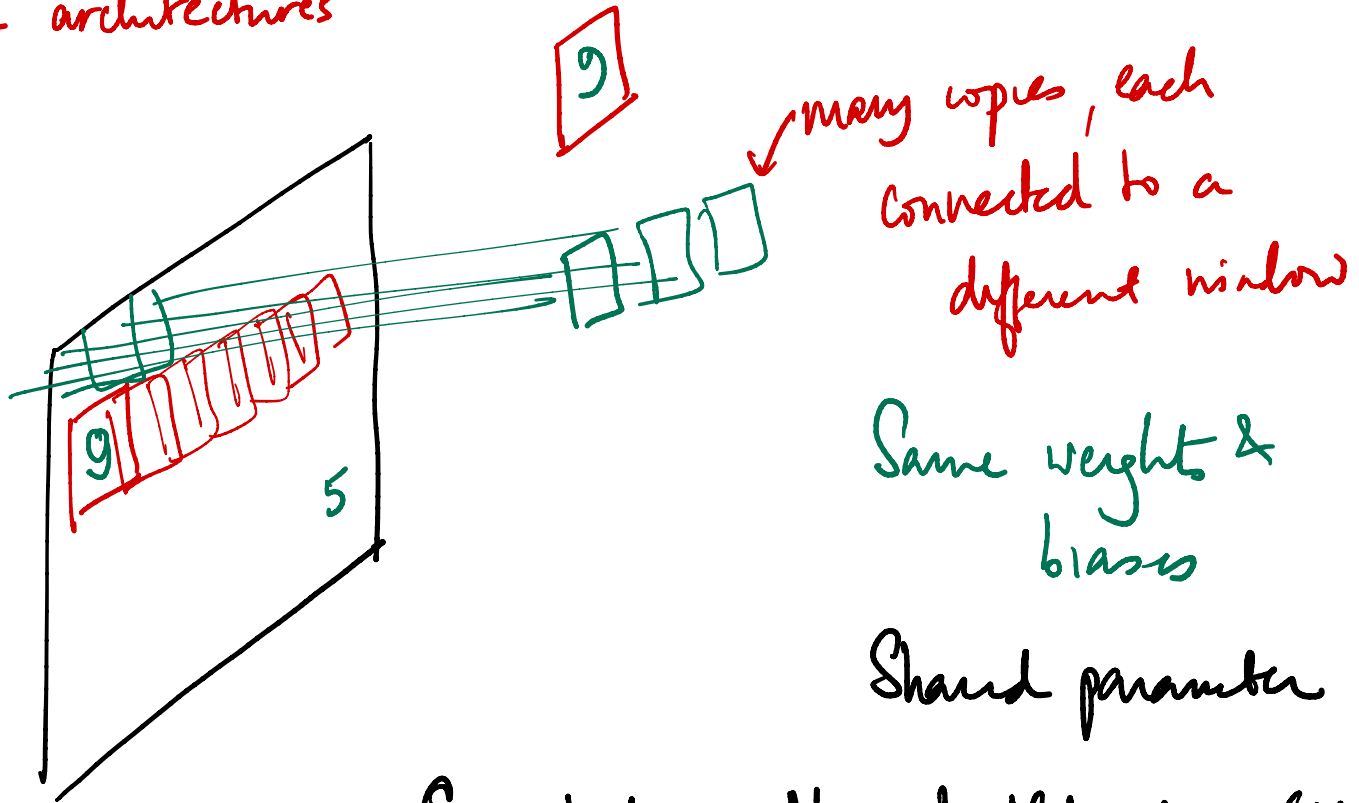 architectures
9
many copies, each
connected to a
different window
9
5
Same weights &
biases
Shared parameter